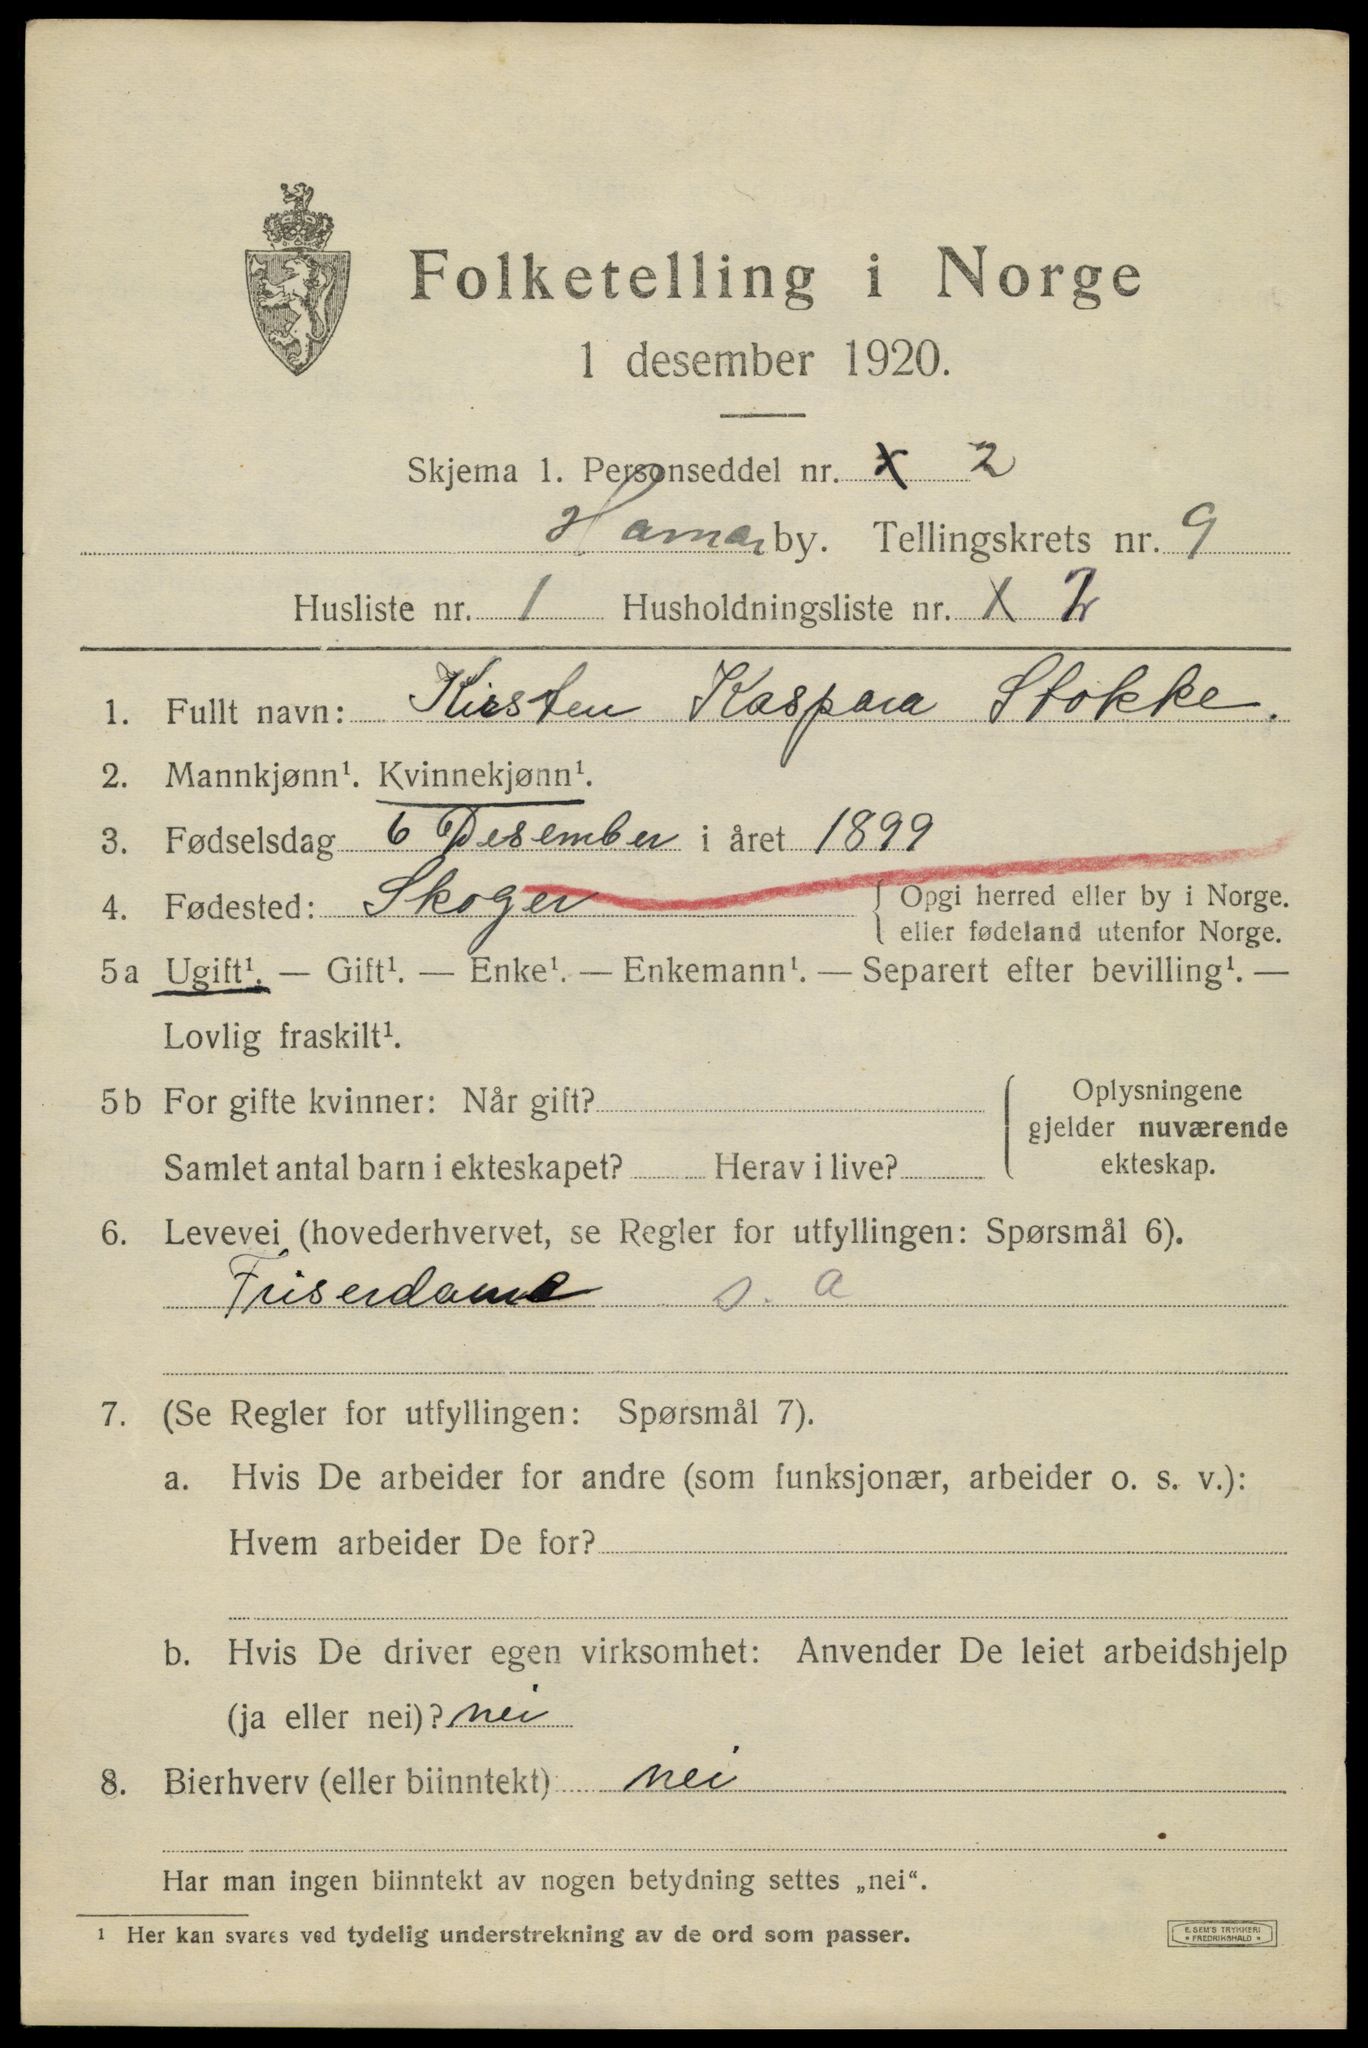 Folketelling i Norge
1 desember 1920.
Skjema 1. Personseddel nr. x 2
Hamar by. Tellingskrets nr. 9
Husliste nr. 1 Husholdningsliste nr. X 2
1. Fullt navn: Kirsten Kaspara Stokke.
2. Mannkjønn¹. Kvinnekjønn¹.
3. Fødselsdag 6 Desember i året 1899
4. Fødested: Skoger { Opgi herred eller by i Norge.
eller fødeland utenfor Norge.
5a Ugift¹. — Gift¹. — Enke¹. — Enkemann¹. — Separert efter bevilling¹. —
Lovlig fraskilt¹.
5b For gifte kvinner: Når gift?
Samlet antal barn i ekteskapet? Herav i live?
Oplysningene
gjelder nuværende
ekteskap.
6. Levevei (hovederhvervet, se Regler for utfyllingen: Spørsmål 6).
Friserdame s. a
7. (Se Regler for utfyllingen: Spørsmål 7).
a. Hvis De arbeider for andre (som funksjonær, arbeider o. s. v.):
Hvem arbeider De for?
b. Hvis De driver egen virksomhet: Anvender De leiet arbeidshjelp
(ja eller nei)? nei
8. Bierhverv (eller biinntekt) nei
Har man ingen biinntekt av nogen betydning settes „nei“.
¹ Her kan svares ved tydelig understrekning av de ord som passer.
E. SEM'S TRYKKERI
* FREDRIKSHALD *